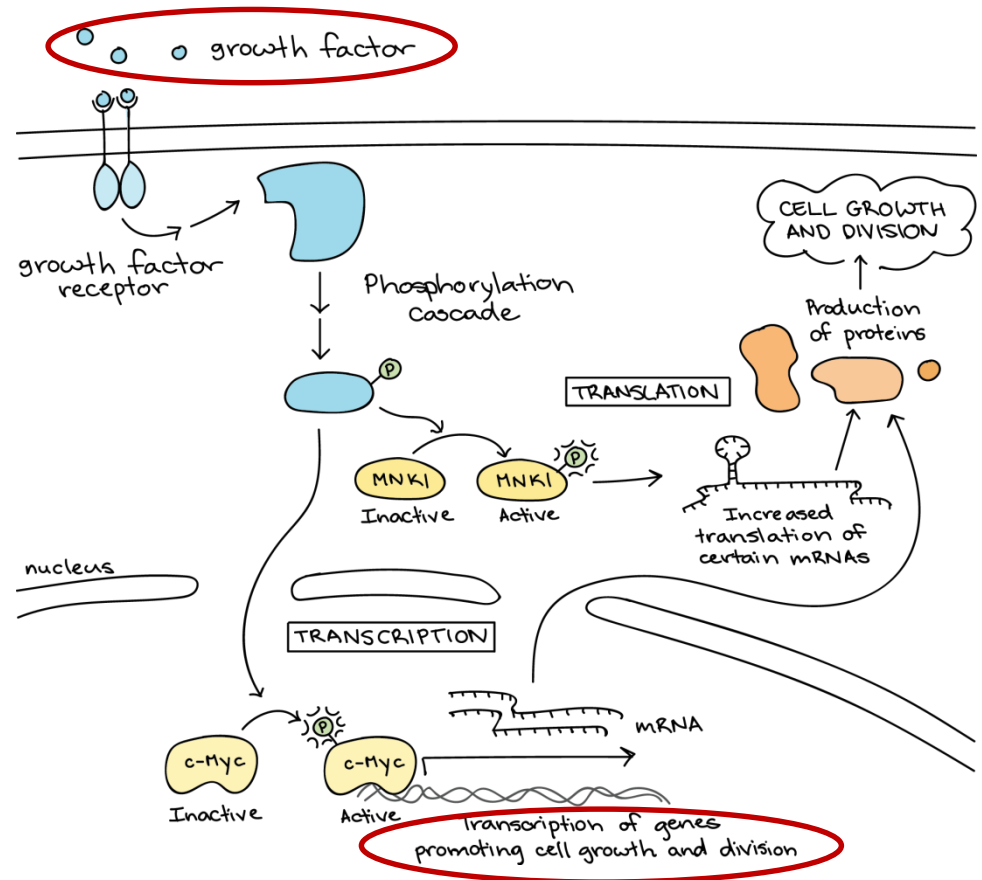 growth factor
growth factor
receptor
Phosphorylation
cascade
CELL GROWTH
AND DIVISION
Production
of proteins
P
TRANSLATION
MNK1
Inactive
MNK1
Active
P
Increased
translation of
certain mRNAs
nucleus
TRANSCRIPTION
mRNA
P
c-Myc
Inactive
c-Myc
Active
Transcription of genes
promoting cell growth and division